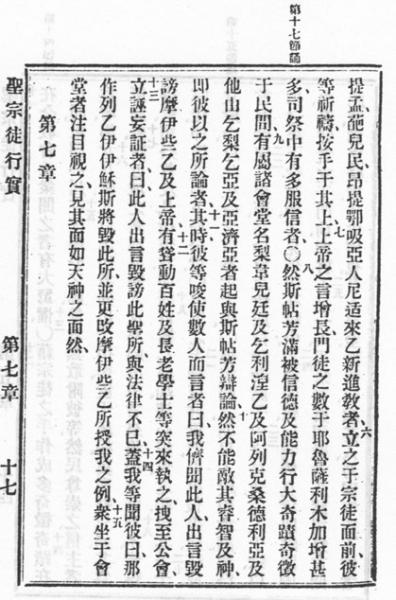 第十七節隨
提孟、葩兒民昂提鄂吸亞人尼适來乙新進敎者、六立之于宗徒面前、彼
等祈禱、按手于其上、七上帝之言增長、門徒之數于耶魯薩利木加增甚
多、司祭中有多服信者、○八然斯帖芳滿被信德及能力、行大奇蹟奇徵
于民間、九有屬諸會堂名梨韋兒廷及乞利湼乙及阿列克桑德利亞及
他山乞梨乞亞及亞濟亞者、起與斯帖芳辯論、十然不能敵其睿智及神、
即彼以之所論者、十一其時彼等唆使數人而言者曰、我儕聞此人出言毀
謗摩伊些乙及上帝、十二有聳動百姓及長老學士等、突來執之、拽至公會、
十三立誣妄証者曰、此人出言毀謗此聖所與法律不已、十四蓋我等聞彼曰、那
作列乙伊伊穌斯將毀此所、並更改摩伊些乙所授我之例、十五衆坐于會
堂者注目視之、見其面如天神之面然、
第七章
聖宗徒行實 第七章 十七